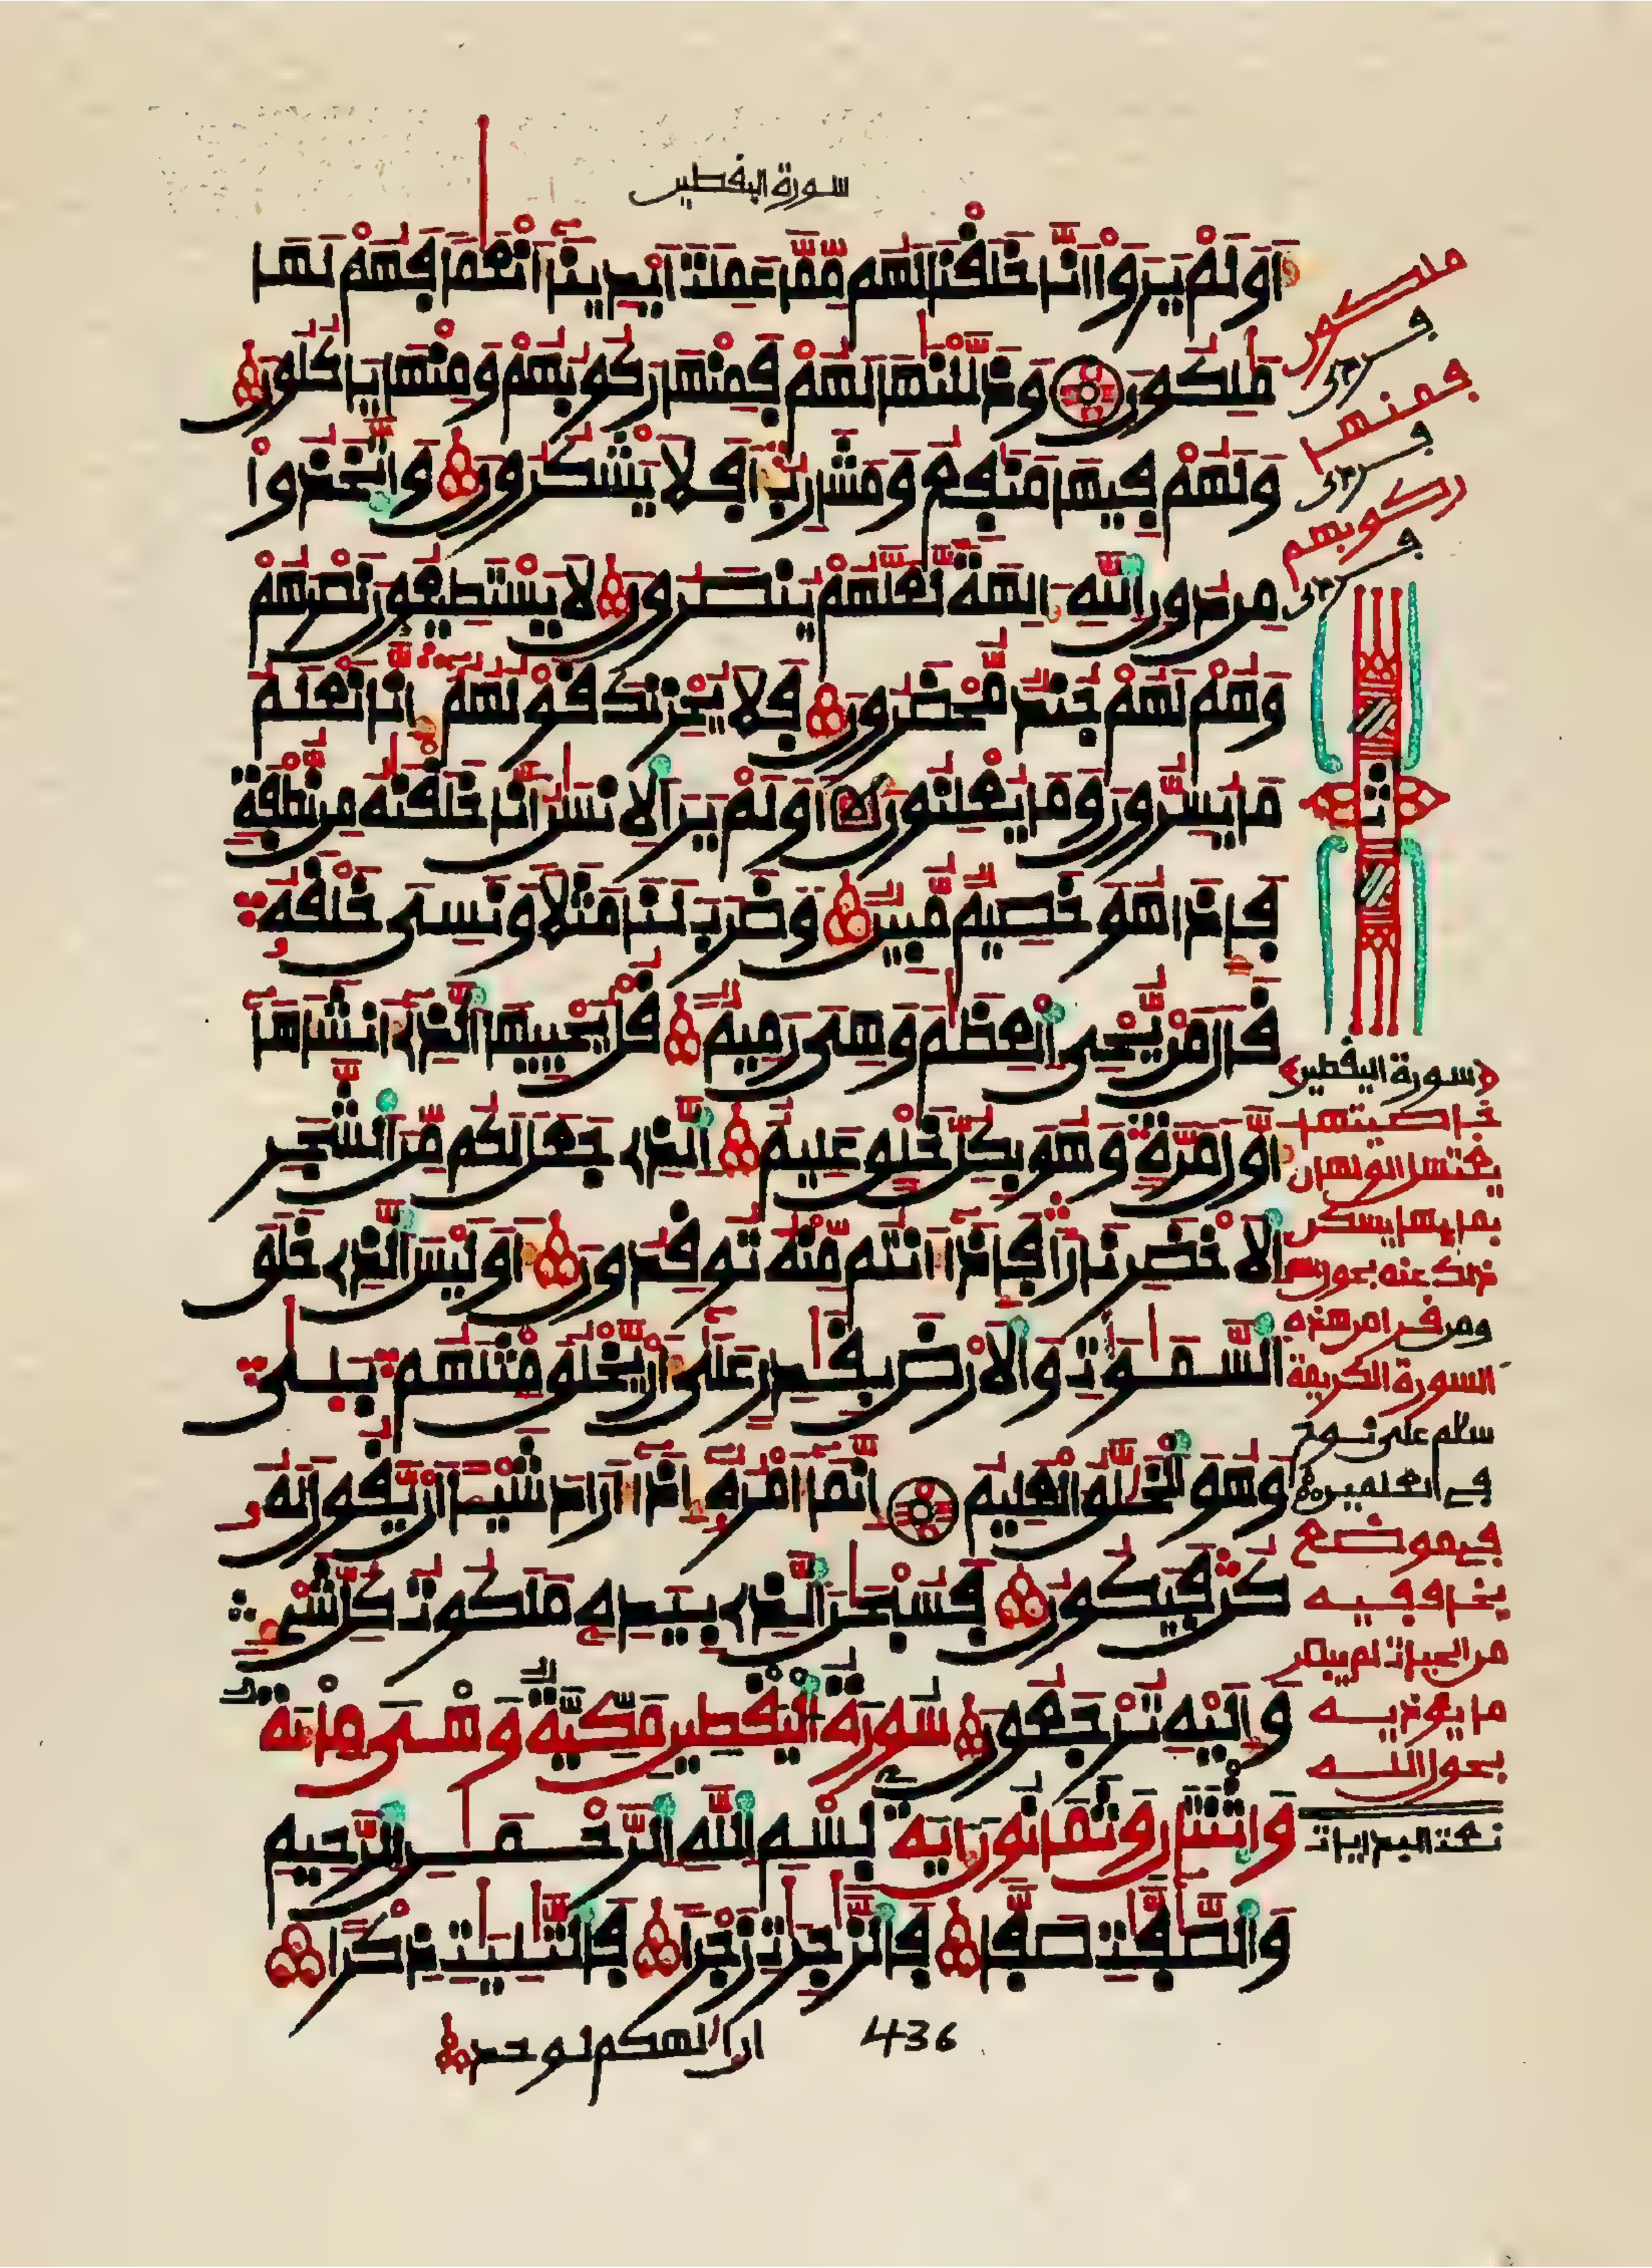 سورة اليقطين
اَوَلَمْ يَرَوْا اَنَّا خَلَقْنَا لَهُم مِّمَّا عَمِلَتَ اَيْدِينَآ أَنْعَٰمًا فَهُمْ لَهَا
مَٰلِكُونَ وَذَلَّلْنَٰهَا لَهُمْ فَمِنْهَا رَكُوبُهُمْ وَمِنْهَا يَاكُلُونَ
وَلَهُمْ فِيهَا مَنَٰفِعُ وَمَشَارِبُ أَفَلَا يَشْكُرُونَ وَاتَّخَذُوا
مِن دُونِ اللَّهِ ءَالِهَةً لَّعَلَّهُمْ يُنصَرُونَ لَا يَسْتَطِيعُونَ نَصْرَهُمْ
وَهُمْ لَهُمْ جُندٌ مُّحْضَرُونَ فَلَا يُحْزِنكَ قَوْلُهُمُۥٓ إِنَّا نَعْلَمُ
مَا يُسِرُّونَ وَمَا يُعْلِنُونَ أَوَلَمْ يَرَ الْإِنسَٰنُ أَنَّا خَلَقْنَٰهُ مِن نُّطْفَةٍ
فَإِذَا هُوَ خَصِيمٌ مُّبِينٌ وَضَرَبَ لَنَا مَثَلًا وَنَسِىَ خَلْقَهُۥ
قَالَ مَنْ يُّحْىِ الْعِظَٰمَ وَهِىَ رَمِيمٌ قُلْ يُحْيِيهَا الَّذِى أَنشَأَهَآ
أَوَّلَ مَرَّةٍ وَهُوَ بِكُلِّ خَلْقٍ عَلِيمٌ الَّذِى جَعَلَ لَكُم مِّنَ الشَّجَرِ
الْأَخْضَرِ نَارًا فَإِذَآ أَنتُم مِّنْهُ تُوقِدُونَ أَوَلَيْسَ الَّذِى خَلَقَ
السَّمَٰوَٰتِ وَالْأَرْضَ بِقَٰدِرٍ عَلَىٰٓ أَنْ يَّخْلُقَ مِثْلَهُم بَلَىٰ
وَهُوَ الْخَلَّٰقُ الْعَلِيمُ إِنَّمَآ أَمْرُهُۥٓ إِذَآ أَرَادَ شَيْـًٔا أَنْ يَّقُولَ لَهُۥ
كُن فَيَكُونُ فَسُبْحَٰنَ الَّذِى بِيَدِهِۦ مَلَكُوتُ كُلِّ شَىْءٍ
وَإِلَيْهِ تُرْجَعُونَ سُورَةُ الْيَقْطِينِ مَكِّيَّةٌ وَهْىَ مِائَةٌ
وَاثْنَتَانِ وَثَمَانُونَ ءَايَةً بِسْمِ اللَّهِ الرَّحْمَٰنِ الرَّحِيمِ
وَالصَّٰٓفَّٰتِ صَفًّا فَالزَّٰجِرَٰتِ زَجْرًا فَالتَّٰلِيَٰتِ ذِكْرًا
436
ان الهكم لوحد
ملكون
فمنها
ركوبهم
ثمن
سورة اليقطين
خاصيتها
يغتسل الولهان
بمايها يسكن
ذلك عنه بعون
ومن قرا من هذه
السورة الكريمة
سلم على نوح
في العلمين
في موضع
يخاف فيه
من الحيات لم يبصر
ما يوذيه
بحول الله